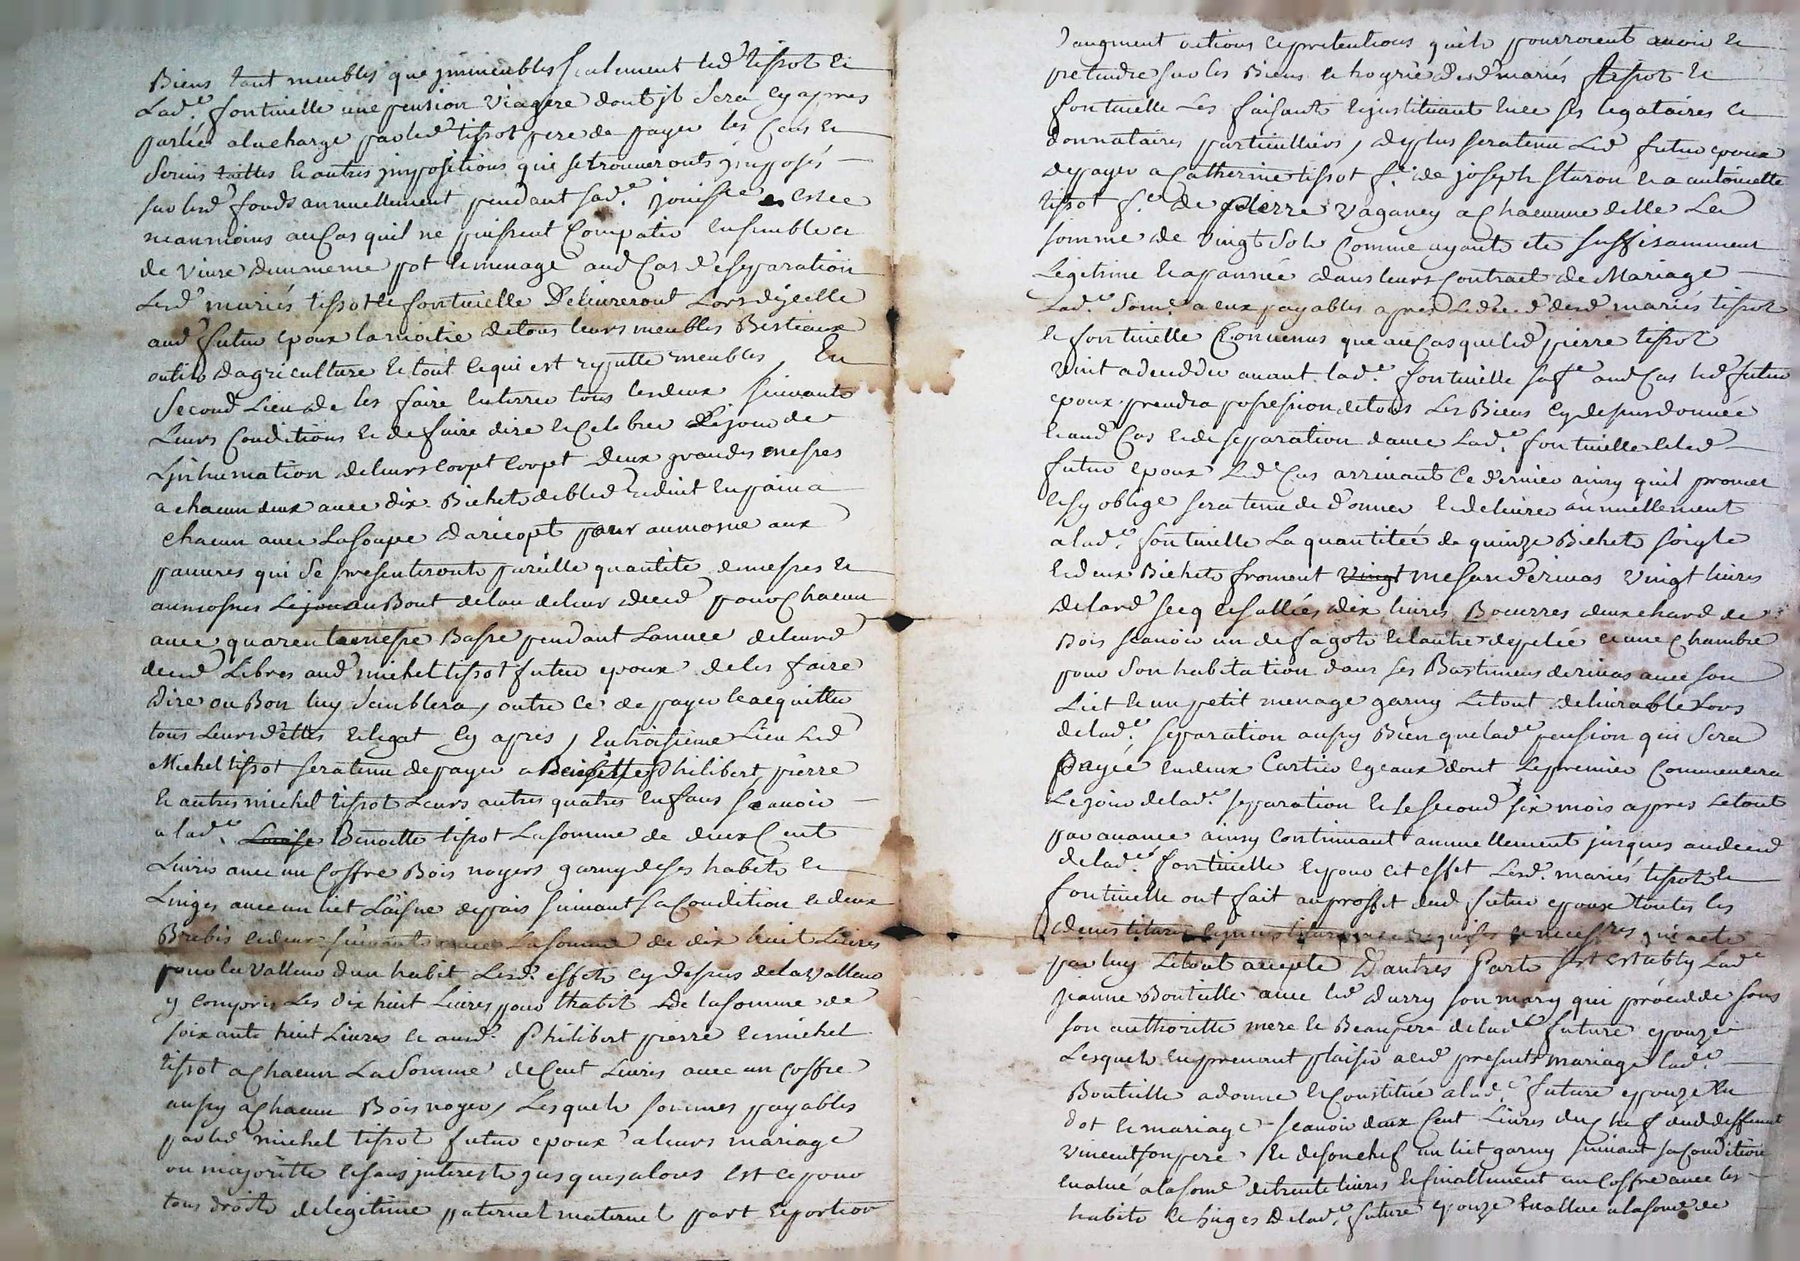 Biens tant meubles que jmmeubles seulement led.r tissot et
Lad.e fontuielle une pension viagere dont jl sera cy apres
parlés a la charge par led.r tissot pere de payer les Cens et
servis tailles et autres jmpositions qui se trouveronts jmposés
sur led.r fonds annuellement pendant sad.e jouisce et este
neanmoins au Cas quil ne puissent Compatir Ensemble et
de vivre dun meme pot et menage aud Cas desepparation
Lesd.r mariés tissot et fontuielle Delivreront Lors dycelle
aud futur epoux la moitie de tous leurs meubles Bestiaux
outils dagriculture et tout ce qui est reputté meubles, En
second Lieu de les faire Enterrer tous les deux suivants
Leurs Conditions et de faire dire et Celebrer Le jour de
Lynhumation de leurs corpt Corpt deux grandes messes
a chacun deux avec dix Bichets de bled reduit en pain a
chacun avec La soupe daricopt pour aumosne aux
pauvres qui se presenteronts pareille quantite de messes et
aumosnes Le jour au Bout de lan de leur deced pour Chacun
avec quarente messe Basse pendant Lannee de leurd
deced Libres aud michel tissot futur epoux de les faire
dire ou Bon luy semblera, outre ce de payer et acquitter
tous Leurs dettes et legat Cy apres, En troisieme Lieu Led
Michel tissot sera tenu de payer a Benoitte Philibert, pierre
et autres michel tissot Leurs autres quatres Enfans scavoir
a lad.e Louise Benoitte tissot La somme de deux Cent
Livres avec un Coffre Bois noyers garny de ses habits et
Linges avec un liet Laisne depais suivant sa Condition et deux
Brebis et deux suivants avec La somme de dix huit Livres
pour la valleur dun habit Lesd. effets cy dessus de la valleur
y compris Les dix huit Livres pour lhabit De la somme de
soixante huit Livres et aud. Philibert pierre et michel
tissot a Chacun La Somme de Cent Livres avec un Coffre
aussy a Chacun Bois noyer, Lesquels sommes payables
par led michel tissot futur epoux a leurs mariage
ou majoritte et sans jnterests jusques alors Est ce pour
tous droits de legitime paternel maternel part et portion
daugment actions et pretentions quils pourroient avoir et
pretendre sur les Biens et hoyrie desd.r mariés tissot et
fontuielle Les faisant et jnstituant En ce ses legataires et
donnataires particuilliers, de plus sera tenu Led futur epoux
de payer a Catherine tissot f.e de joseph staron et a antoinette
tissot f.e de pierre vaganey a Chacune delle La
somme de vingt sols comme ayants ete suffisamment
Legitime et apannée dans leurs Contract de Mariage
Lad.e Som.e a eux payables apres Le deced desd mariés tissot
et fontuielle Convenus que au Cas que led pierre tissot
vint a decedder avant lad.e fontuielle sa f.e aud Cas led futur
epoux prendra possession de tous Les Biens cy dessus donnée
et aud Cas et de sepparation davec Lad.e fontuielle et led
futur epoux Led Cas arrivant Ce dernier ainsy quil promet
et sy oblige sera tenu de donner et delivre annuellement
a lad.e fontuielle La quantitée de quinze Bichets soigle
et deux Bichets froment vingt mesure derivas vingt livres
de lard secq et sallées dix livres Boeurres deux chard de
Bois scavoir un de fagots et lautre de pelée et une Chambre
pour son habitation dans les Bastiments derivas avec son
Liet et un petit menage garny Le tout delivrable Lors
de lad.e sepparation aussy Bien que lad.e pension qui sera
Payée en deux Cartier egeaux dont Le premier Commencera
Le jour de lad.e sepparation et Le second six mois apres Le tout
par avance ainsy continuant annuellement jusques au deced
de lad.e fontuielle et pour cet effet Lesd. mariés tissot et
fontuielle ont fait au proffit dud futur epoux toutes les
par luy Le tout accepte Dautres Parts sest establiy Lad.e
jeanne Boutuille avec led durry son mary qui procedde sous
son authoritte mere et Beaupere de lad.e future epouze
Lesquels En prenant plaisir aud present mariage lad.e
Boutuille a donne et Constitué a lad.e future epouze En
dot et mariage scavoir deux Cent Livres du Chef dud deffunt
vincent son pere, et de son chef un liet garny suivant sa Condition
Evalué a la som.e de trente livres et finallement un Coffre avec les
habits et linges De lad.e future epouze Evallue a la som.e de